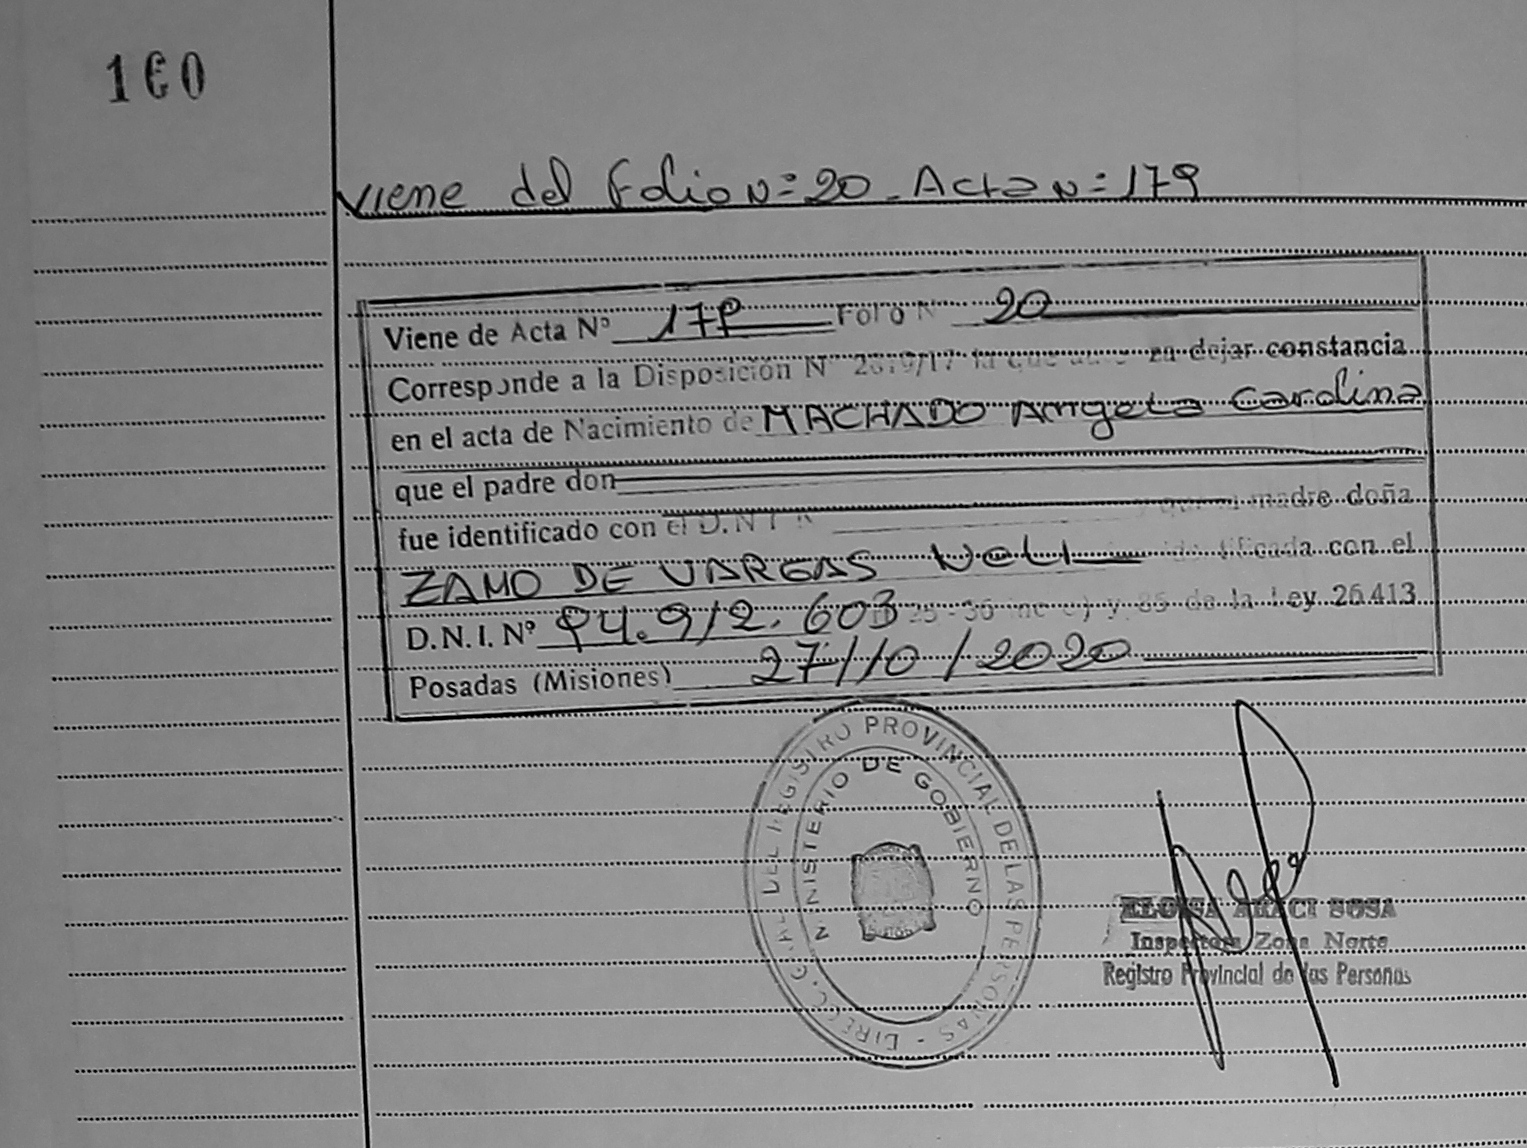 160
Viene del Folio Nº 20 - Acta Nº 179
Viene de Acta Nº 179 Folio Nº 20
Corresponde a la Disposición Nº 2679/17 la que en dejar constancia
en el acta de Nacimiento de MACHADO Angela Carolina
que el padre don
fue identificado con el D.N.I. N madre doña
ZAMO DE VARGAS Neli identificada con el
D.N.I. Nº 94.912.603 25 - 36 inc c) y 85 de la Ley 26.413
Posadas (Misiones) 27/10/2020
DIREC. GRAL. DEL REGISTRO PROVINCIAL DE LAS PERSONAS -
MINISTERIO DE GOBIERNO
ELOISA ARACI SOSA
Inspectora Zona Norte
Registro Provincial de las Personas